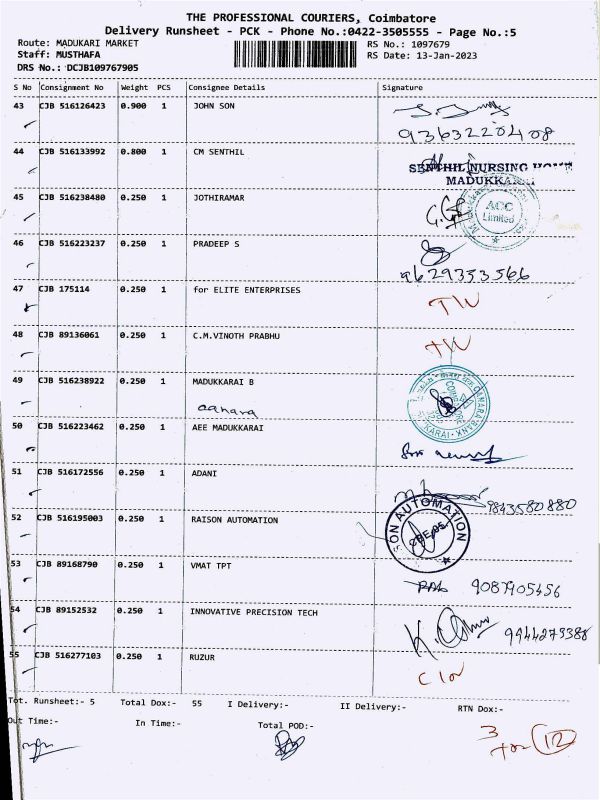 THE PROFESSIONAL COURIERS, Coimbatore
Delivery Runsheet - PCK - Phone No.:0422-3505555 - Page No.:5
Route: MADUKARI MARKET RS No.: 1097679
Staff: MUSTHAFA RS Date: 13-Jan-2023
DRS No.: DCJB109767905
S No Consignment No Weight PCS Consignee Details Signature
43 CJB 516126423 0.900 1 JOHN SON
9363220408
44 CJB 516133992 0.800 1 CM SENTHIL
SENTHIL NURSING HOME
MADUKKARAI
45 CJB 516238480 0.250 1 JOTHIRAMAR
ACC
Limited
46 CJB 516223237 0.250 1 PRADEEP S
9629353566
47 CJB 175114 0.250 1 for ELITE ENTERPRISES
48 CJB 89136061 0.250 1 C.M.VINOTH PRABHU
49 CJB 516238922 0.250 1 MADUKKARAI B
canara
CANARA BANK
50 CJB 516223462 0.250 1 AEE MADUKKARAI
51 CJB 516172556 0.250 1 ADANI
9843580880
52 CJB 516195003 0.250 1 RAISON AUTOMATION
SON AUTOMATION
53 CJB 89168790 0.250 1 VMAT TPT
9087905456
54 CJB 89152532 0.250 1 INNOVATIVE PRECISION TECH
9944279388
55 CJB 516277103 0.250 1 RUZUR
Tot. Runsheet:- 5 Total Dox:- 55 I Delivery:- II Delivery:- RTN Dox:-
Out Time:- In Time:- Total POD:-
3
12